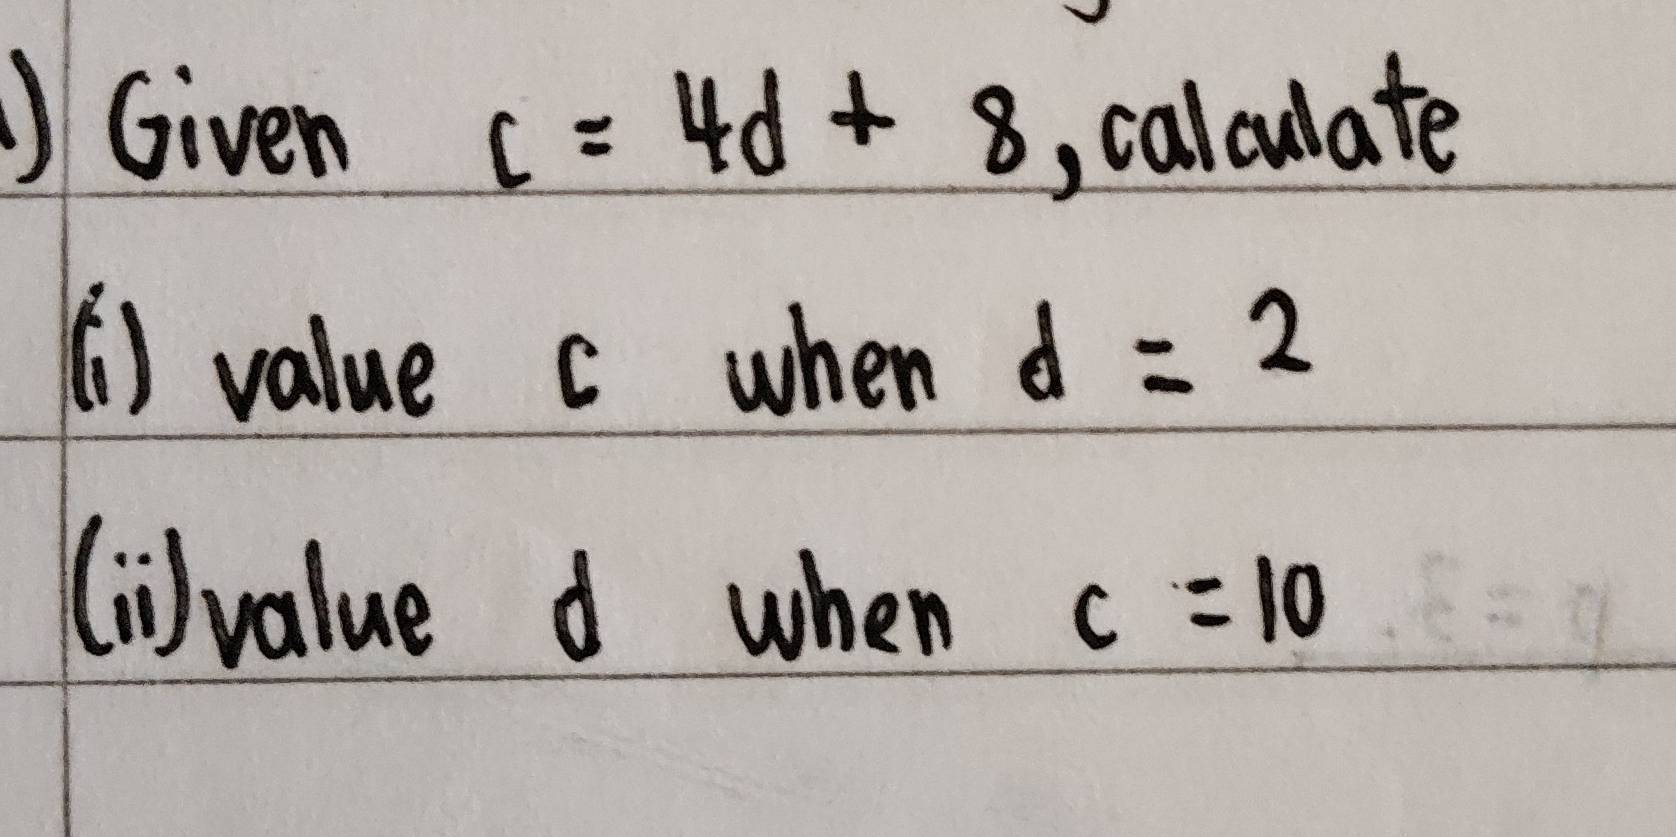 1) Given c = 4d + 8, calculate
(i) value c when d = 2
(ii) value d when c = 10